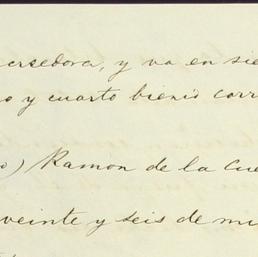 creedora, y va en sie
o y cuarto bienio corr
o) Ramon de la Cue
veinte y seis de mi